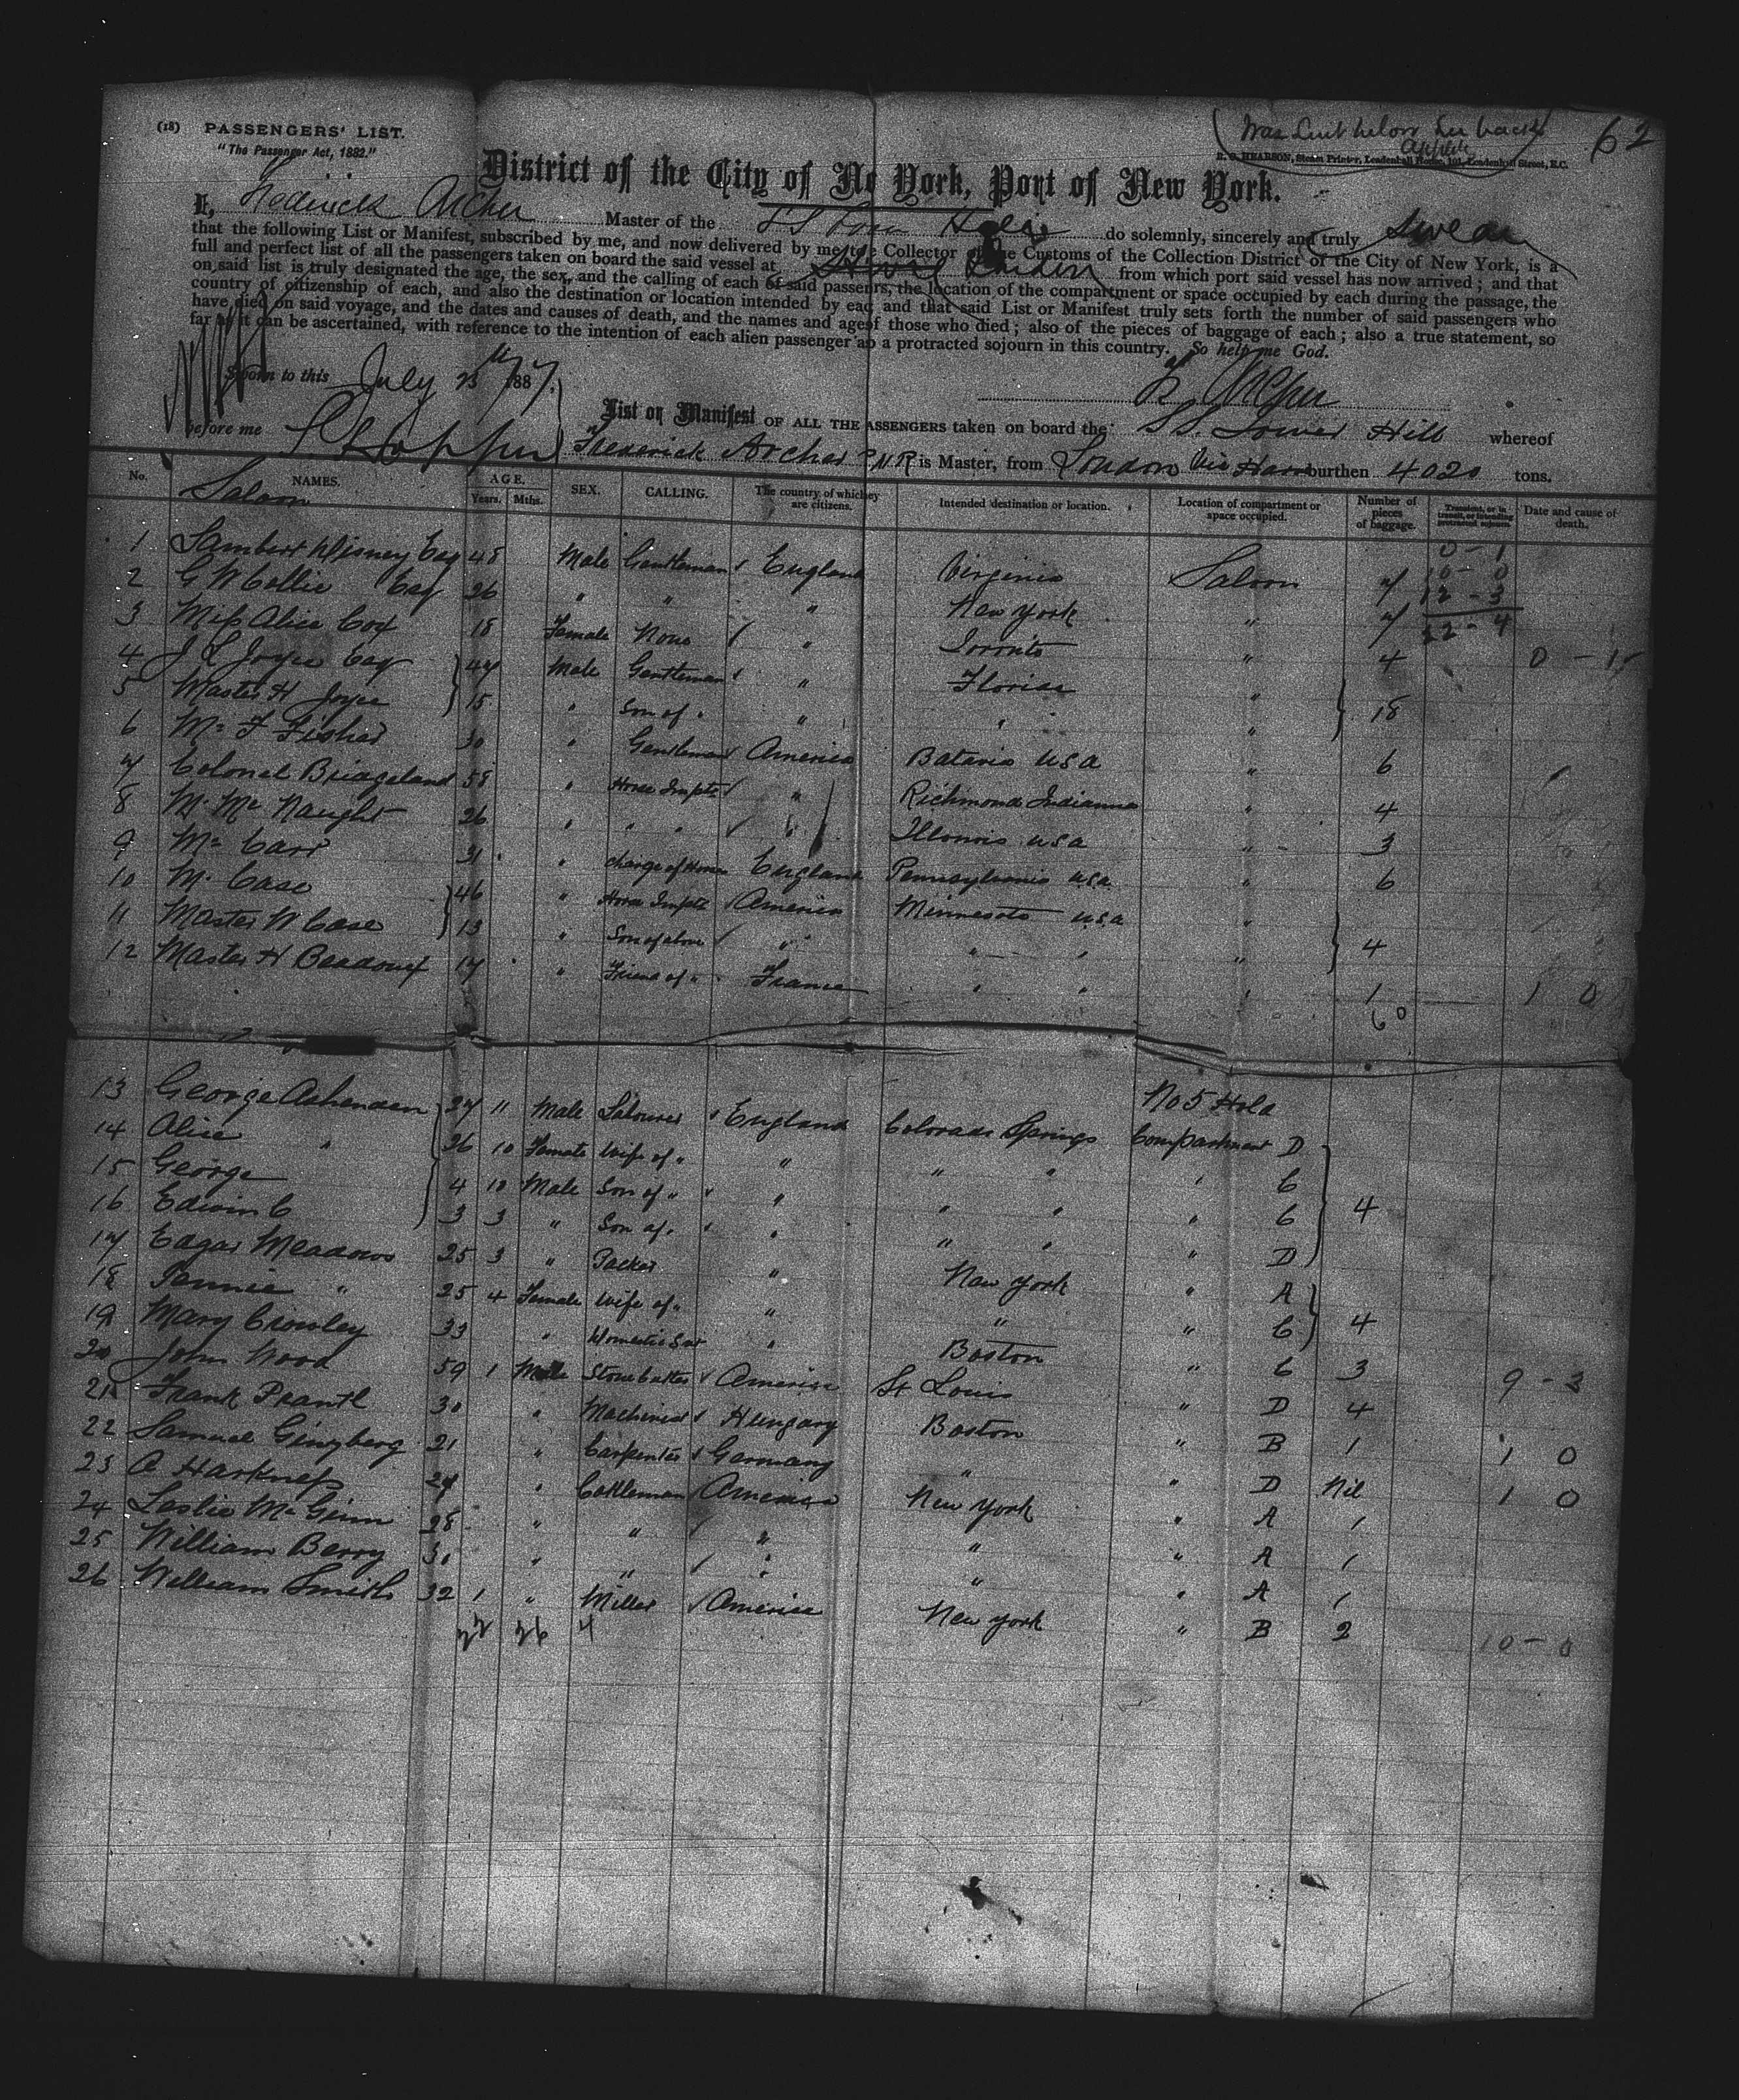 (18) PASSENGERS' LIST.
"The Passenger Act, 1882."
(Was sent below See back)
62
R. O. HEARSON, Steam Printer, Leadenhall House, 101, Leadenhall Street, E.C.
District of the City of No York, Port of New York.
I, Frederick Archer Master of the do solemnly, sincerely and truly Swear
that the following List or Manifest, subscribed by me, and now delivered by me to the Collector of the Customs of the Collection District of the City of New York, is a
full and perfect list of all the passengers taken on board the said vessel at London from which port said vessel has now arrived; and that
on said list is truly designated the age, the sex, and the calling of each of said passenrs, the location of the compartment or space occupied by each during the passage, the
country of citizenship of each, and also the destination or location intended by eac and that said List or Manifest truly sets forth the number of said passengers who
have died on said voyage, and the dates and causes of death, and the names and ages of those who died; also of the pieces of baggage of each; also a true statement, so
far as it can be ascertained, with reference to the intention of each alien passenger as a protracted sojourn in this country. So help me God.
Sworn to this July 25th 1887.
F Archer
before me
List or Manifest OF ALL THE ASSENGERS taken on board the SS. Tower Hill whereof
Frederick Archer R.N.R is Master, from London Via burthen 4020 tons.
No. NAMES. AGE. Years. Mths. SEX. CALLING. The country of which they are citizens. Intended destination or location. Location of compartment or space occupied. Number of pieces of baggage. Transient, or in transit, or intending protracted sojourn. Date and cause of death.
Saloon
0 - 1
10 - 0
12 - 3
22 - 4
1 Lambert Disney Esq 48 Male Gentleman England Virginia Saloon 7
2 G W Collie Esq 26 " " " New York " 7
3 Miss Alice Cox 18 Female None " Toronto " 4 0 - 1
4 J L Joyce Esq 47 Male Gentleman " Florida "
5 Master H Joyce 15 " Son of " " " " 18
6 Mr F Fisher 30 " Gentleman America Batavia USA " 6
7 Colonel Bridgeland 58 " Horse Imptr " Richmond Indianna " 4
8 Mr McNaught 26 " " " " Illinois USA " 3
9 Mr Carr 31 " Charge of Horses England Pennsylvania USA " 6
10 Mr Case 46 " Horse Imptr America Minnesota USA "
11 Master W Case 13 " Son of above " " " " 4
12 Master H 17 " Friend of " France " " " 1 1 0
60
13 George Ashenden 27 11 Male Labourer England Colorado Springs No 5 Hold Compartment D
14 Alice " 26 10 Female Wife of " " " " " C
15 George 4 10 Male Son of " " " " " C 4
16 Edwin C 3 3 " Son of " " " " " D
17 Edgar Meadows 25 3 " Packer " New York " A
18 Fannie " 25 4 Female Wife of " " " " C 4
19 Mary Crowley 33 " Domestic Svt " Boston " C 3 9 - 3
20 John Wood 59 1 Male Stone Cutter America St Louis " D 4
21 Frank Prantl 30 " Machinist Hungary Boston " B 1 1 0
22 Samuel Ginzberg 21 " Carpenter Germany " " D Nil 1 0
23 A Harkness 24 " Cattleman America New York " A 1
24 Leslie McGinn 28 " " " " " A 1
25 William Berry 30 " " " " " A 1
26 William Smith 32 1 " Miller America New York " B 2 10 - 0
22 26 4